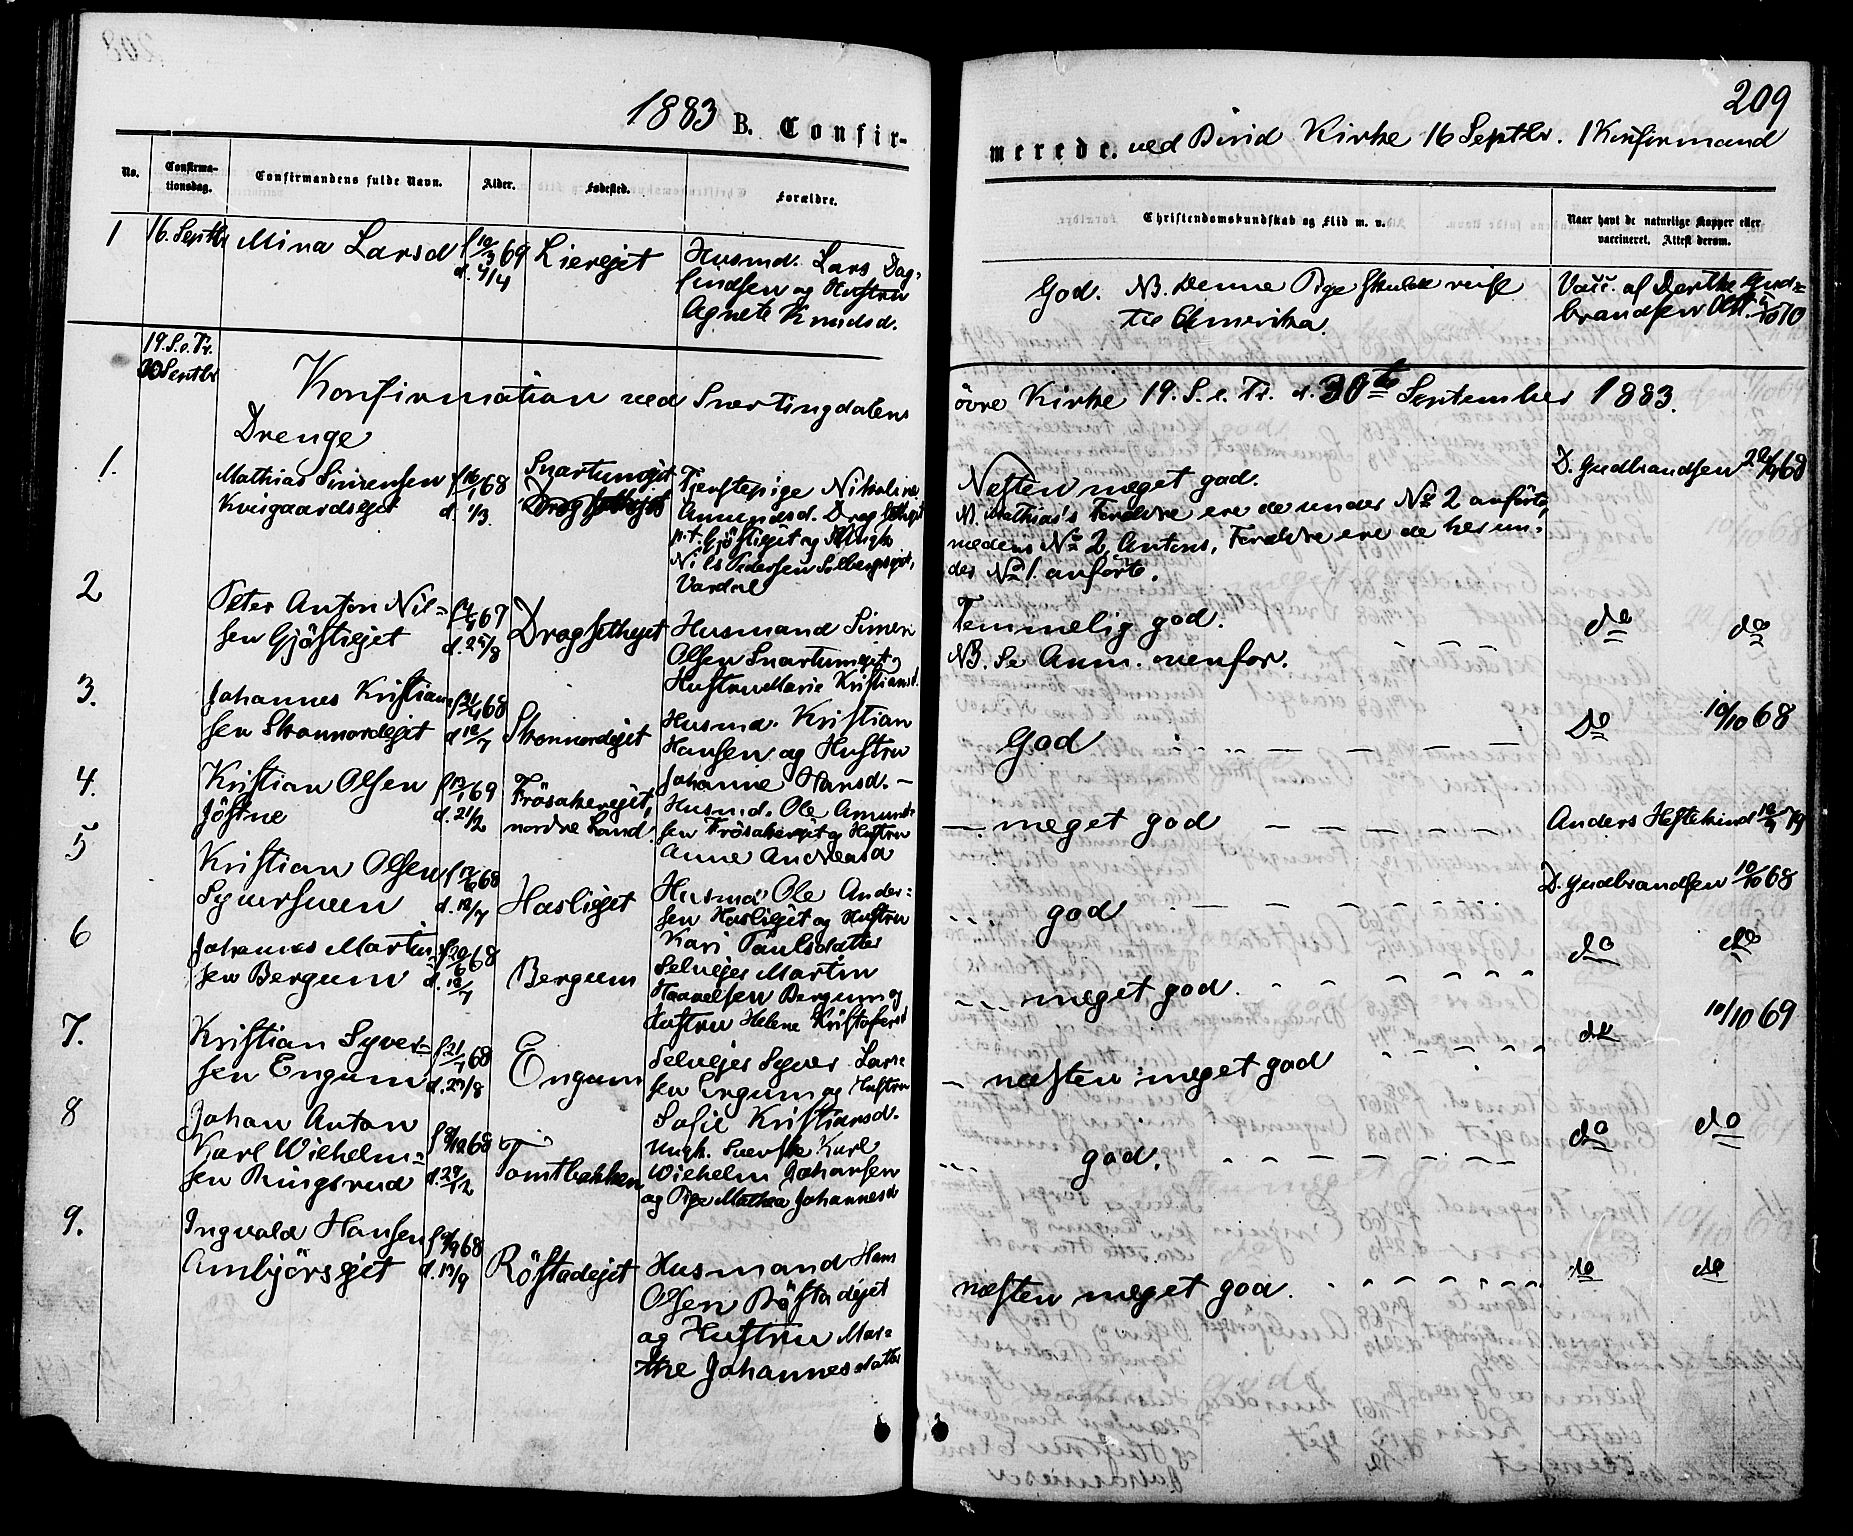 209
1883 B. Confir-
merede. ved Birid Kirke 16 Septbr. 1 Konfirmand
No.
Confirma-
tionsdag.
Confirmandens fulde Navn.
Alder.
Fødested.
Forældre.
Christendomskundskab og Flid m. v.
Naar havt de naturlige Kopper eller
vaccineret. Attest derom.
1 16. Septbr Mina Larsd f 10/3 69 d. 4/4 Liereiet
Husmd. Lars Dag-
findsen og Hustru
Agnete Knudsd.
God. NB. Denne Pige skulde reise
til Amerika.
Vacc. af Dorthe Gud-
brandsen Att.
19. S. e. Tr.
30 Septbr
Konfirmation ved Snertingdalens
øvre Kirke 19. S. e. Tr. d. 30te September 1883.
Drenge
1. Mathias Simensen
Kvisgaardseiet
f 16/1 68
d. 1/3.
Snartumeiet
Dragsetheiet
Tjenstepige Nikoline
Amundsd. Dragsetheiet
p. t. Gjøstieiet og Ungk.
Nils Pedersen Solbergseiet,
Vardal
Næsten meget god.
N. Mathias's Forældre ere de under No 2 anførte,
medens No 2, Antons, Forældre ere de her un-
der No 1 anførte.
D. Gudbrandsen 20/9 68
2 Peter Anton Nil-
sen Gjøstieiet
d. 25/8
Dragsetheiet
Husmand Simen
Olsen Snartumeiet og
Hustru Marie Kristiansd.
Temmelig god.
NB. Se Anm. ovenfor.
do do
3. Johannes Kristian-
sen Skonnordeiet
d. 12/7
Skonnordeiet
Husmd. Kristian
Hansen og Hustru
Johanne Hansd. -
God
Do 10/10 68
4. Kristian Olsen
Jøstne
f 13/1 69
d. 21/2
Frøsakereiet,
nordre Land.
Husmd. Ole Amund-
sen Frøsakereiet og Hustru
Anne Andreasd
meget god
Anders Heltekind
5 Kristian Olsen
d. 12/7
Haslieiet
Husmd Ole Ander-
sen Haslieiet og Hustru
Kari Paulsdatter
god
D. Gudbrandsen 10/10 68
6 Johannes Martin-
sen Bergum
f 20/6 68
d. 12/7
Bergum
Selveier Martin
Haavelsen Bergum og
Hustru Helene Kristofersd
meget god.
do do
7. Kristian Syver-
sen Engum
f 21/7 68
d. 23/8
Engum
Selveier Syver Lar-
sen Engum og Hustru
Sofie Kristiansd.
næsten meget god
do 10/10 69
8 Johan Anton
Karl Wilhelm-
sen Ringsrud
d. 27/12
Tomtbakken
Ungk. Svenske Karl
Wilhelm Johansen
og Pige Mathea Johannesd
god.
do do
9. Ingvald Hansen
Ambjørseiet
f 4/9 68
d. 13/9
Røstadeiet
Husmand Hans
Olsen Røstadeiet
og Hustru Mar-
the Johannesdatter
næsten meget god.
do do